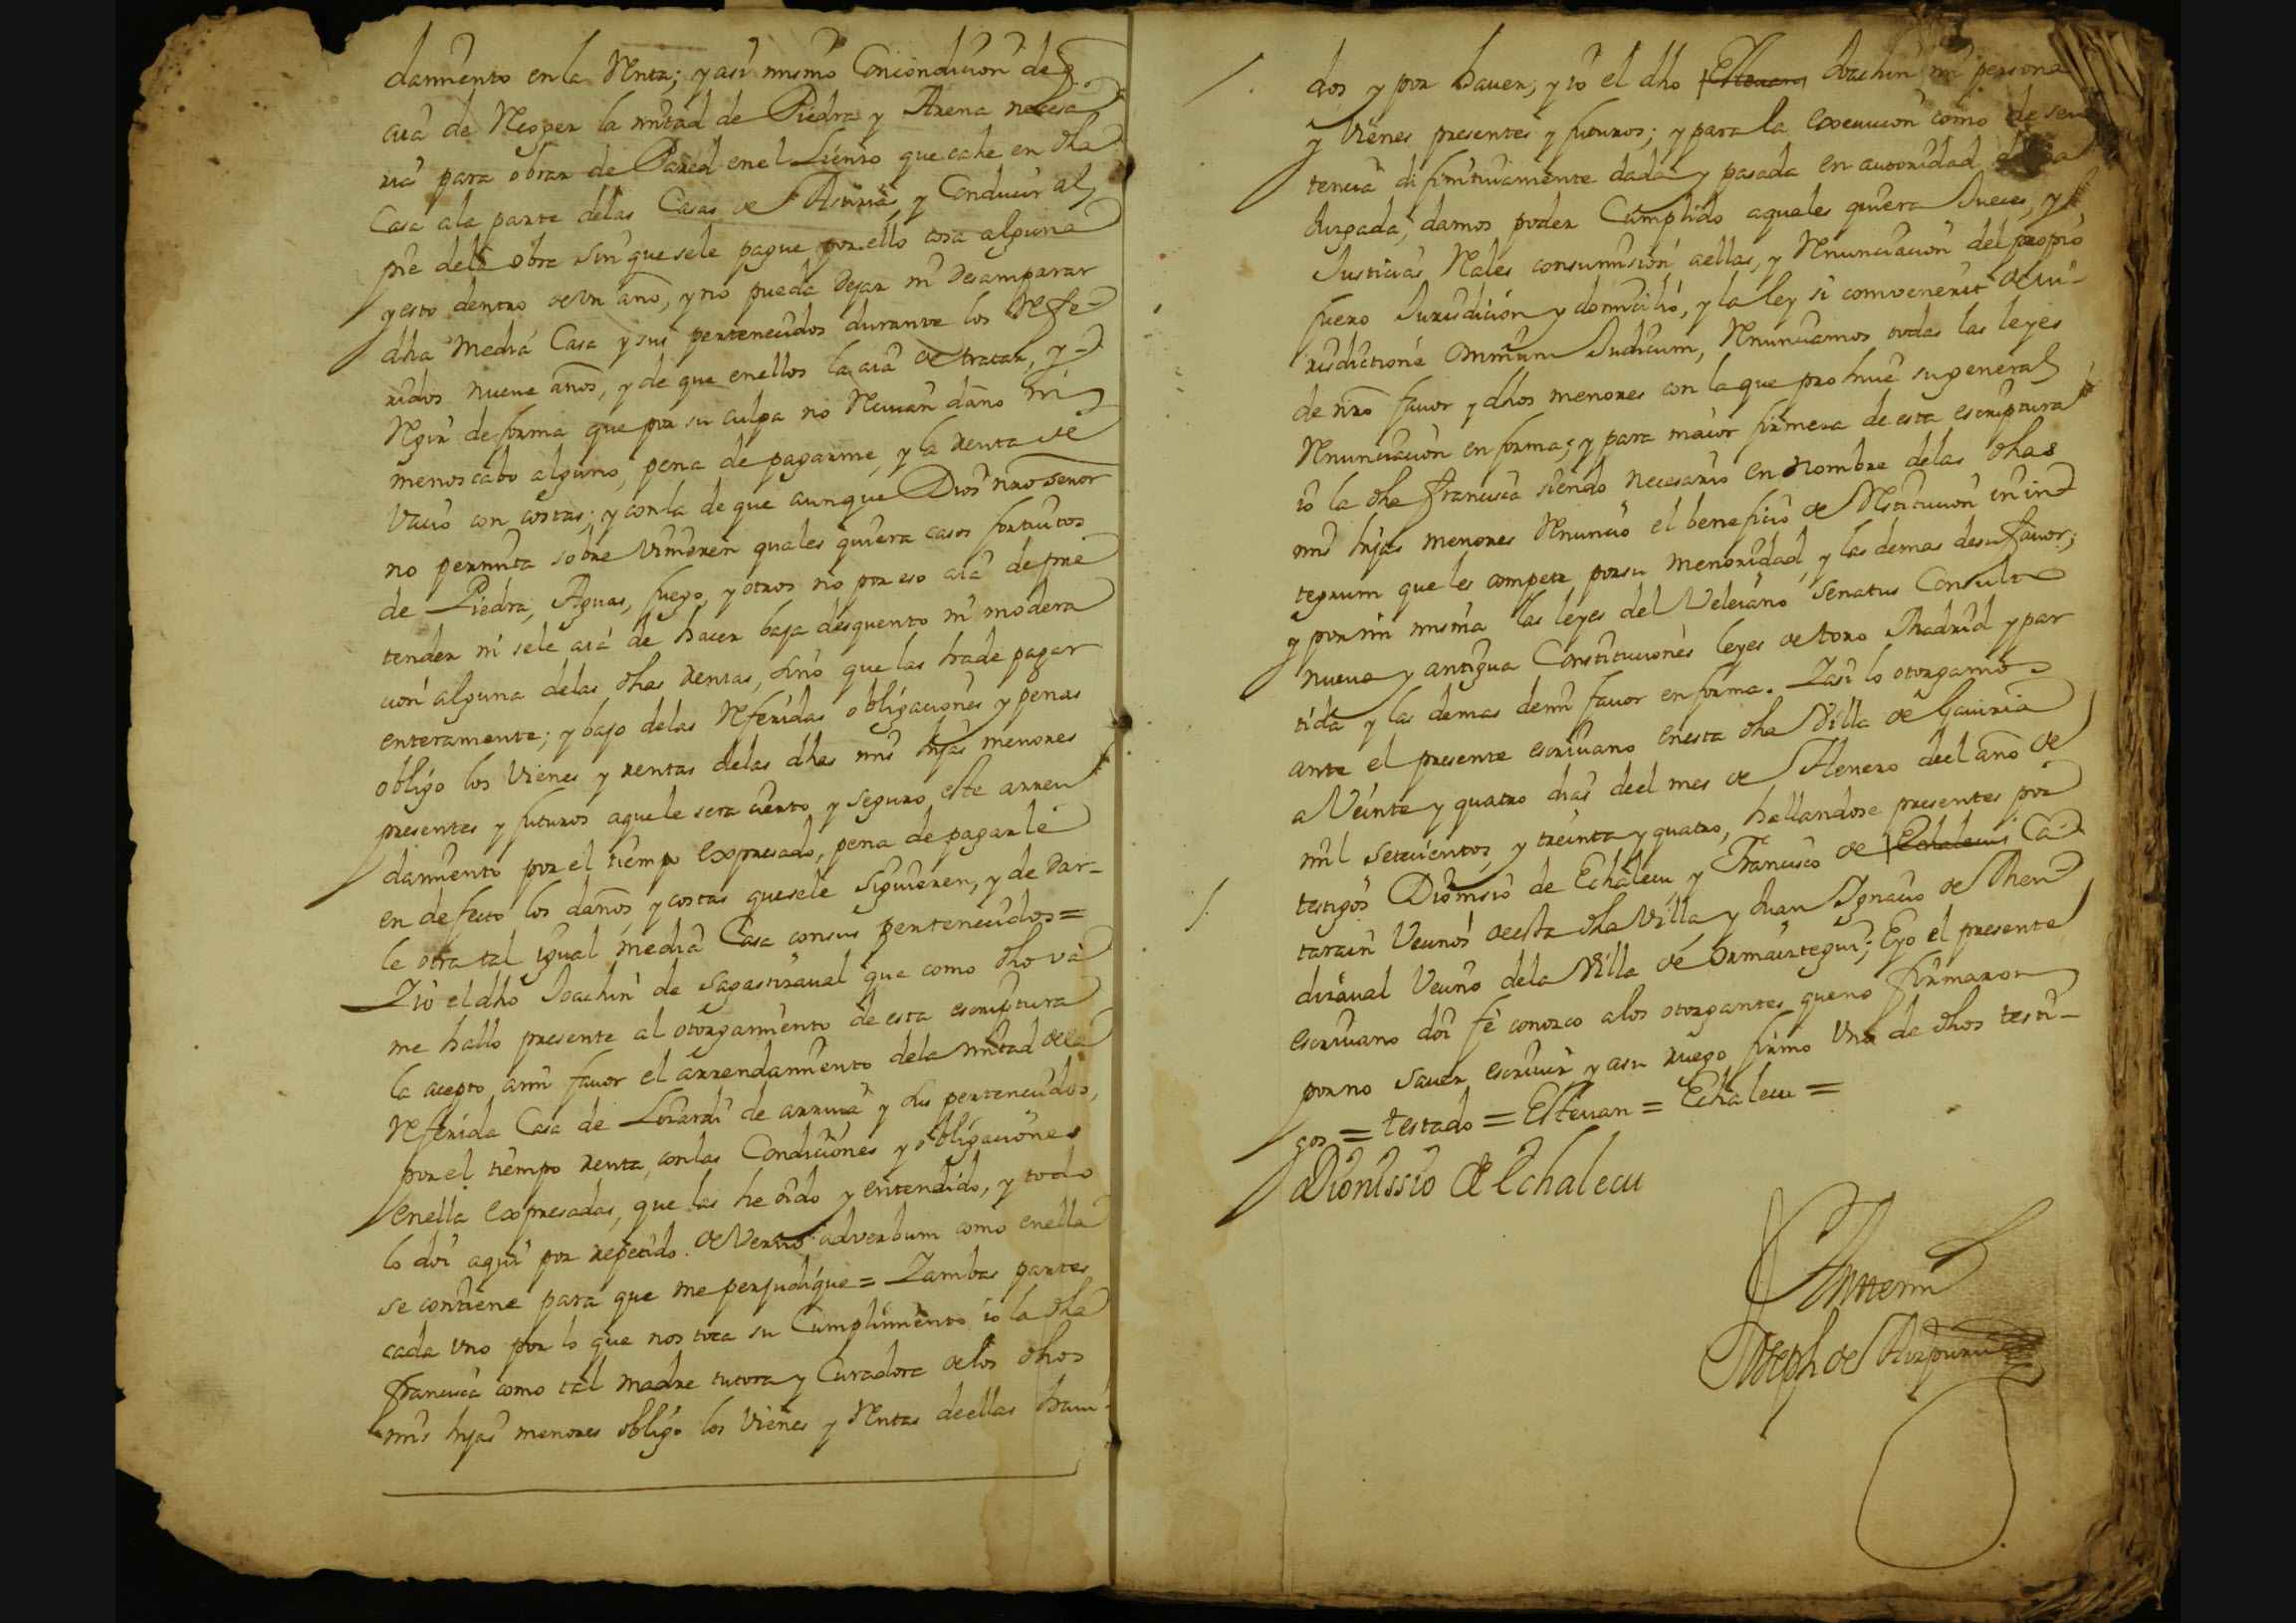 damiento en la Renta; y asi mismo Concondicion de q.
aia de Recoger la mitad de Piedra y Arena necesa
ria para obrar de Pared en el Lienzo que cahe en dha
Casa ala parte delas Casas de Asturia, y Conducir al
pie dela obra sin que sele pague por ello cosa alguna
y esto dentro de Vn año, y no pueda dejar ni desamparar
dha media Casa y sus pertenecidos durante los Refe
ridos nueve años, y de que enellos la aia de tratar, y
Regir de forma que por su culpa no Reciuan daño ni
menoscabo alguno, pena de pagarme, y la renta de
Vacio con costas; y conla de que aunque Dios nro señor
no permita sobre Vinieren quales quiera casos fortuitos
de Piedra, Aguas, fuego, y otros no por eso aia de pre
tender ni sele aia de hacer baja desquento ni modera
cion alguna delas dhas rentas, sino que las hade pagar
enteramente; y bajo delas Referidas obligaciones y penas
obligo los Vienes y rentas delas dhas mis hijas menores
presentes y futuros aquele sera cierto y seguro este arren
damiento por el tiempo expresado, pena de pagarle
en defecto los daños y costas quesele siguieren, y de Dar-
le otra tal igual media Casa consus pertenecidos =
Y io el dho Joachin de Sagastizaual que como dho và
me hallo presente al otorgamiento de esta escriptura
la acepto ami fauor el arrendamiento dela mitad dela
Referida Casa de de arriua y sus pertenecidos,
por el tiempo renta, conlas Condiciones y obligaciones
enella expresadas, que las he oido y entendido, y todo
lo doi aqui por repetido de Vervo adverbum como enella
se contiene para que me perjudique = Y ambas partes
cada uno por lo que nos toca su Cumplimiento io la dha
francisca como tal madre tutora y Curadora delos dhos
mis hijas menores obligo los Vienes y Rentas deellas haui
dos y por hauer, y io el dho Estevan Joachin mi persona
y Vienes presentes y futuros; y para la execucion como de sen
tencia difinitiuamente dada y pasada en autoridad de
Juzgada, damos poder Cumplido aquales quiera Jueces, y
Justicias Rales consumision aellas, y Renunciacion del propio
fuero Jurisdicion y domicilio, y la ley si comvenerit de Iu-
risdictione Omnium Judicum, Renunciamos todas las leyes
de nro fauor y dhos menores con la que prohiue su general
Renunciacion en forma; y para maior firmeza de esta escriptura
io la dha francisca siendo necesario en Nombre delas dhas
mis hijas menores Renuncio el beneficio de Restitucion in in
tegrum que les compete por su menoridad, y las demas desu fauor;
y por mi misma las leyes del Veleiano Senatus Consulto
nueua y antigua Constituciones leyes de toro Madrid y par
tida y las demas demi fauor en forma. Y asi lo otorgamos
ante el presente escriuano enesta dha Villa de Gauiria
a Veinte y quatro dias deel mes de Henero deel año de
mil setecientos y treinta y quatro, hallandose presentes por
testigos Dionisio de Echalecu y Francisco de Echalecu Ca
tarain Vecinos deesta dha Villa y Juan Ignacio de Men
dizaual Vecino dela Villa de Ormaiztegui; E yo el presente
escriuano doi fè conozco alos otorgantes, queno firmaron
por no sauer escriuir y asu ruego firmo Vno de dhos testi-
gos = testado = Estevan = Echalecu =
Dionissio de Echalecu
Antemi
Joseph de Aizpuru